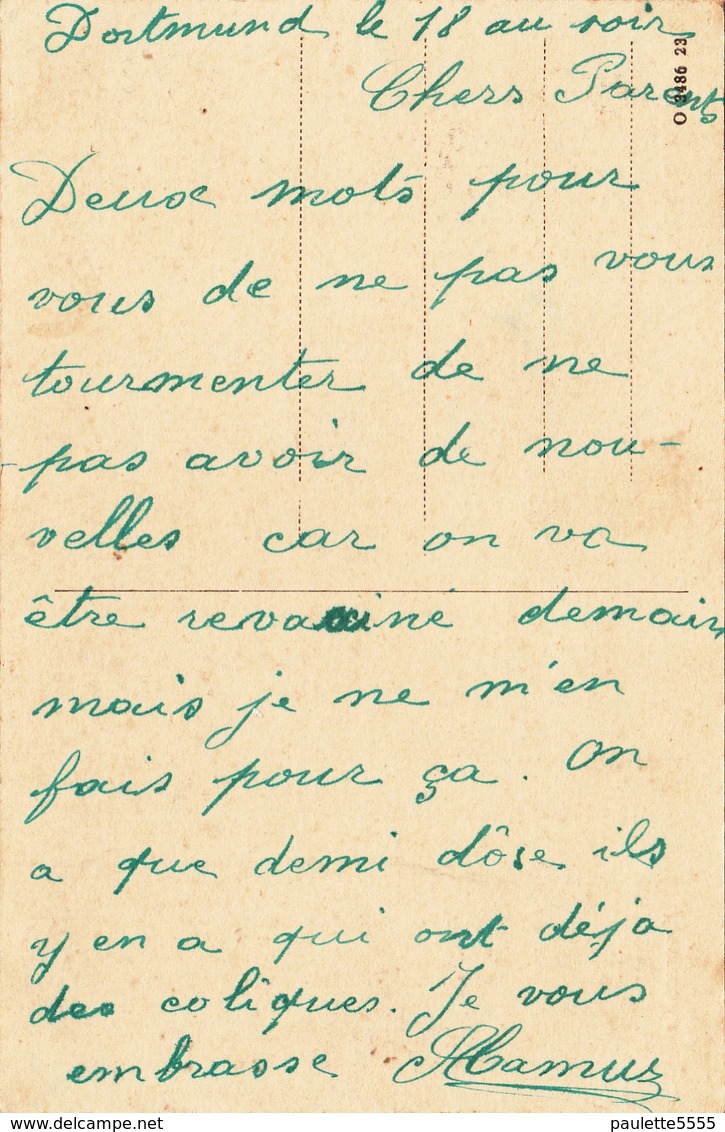 Dortmund le 18 au soir
Chers Parents
O 2486 23
Deux mots pour
vous de ne pas vous
tourmenter de ne
pas avoir de nou-
velles car on va
être revacciné demain
mais je ne m'en
fais pour ça. On
a que demi dôse ils
y en a qui ont déja
des coliques. Je vous
embrasse
delcampe.net
paulette5555